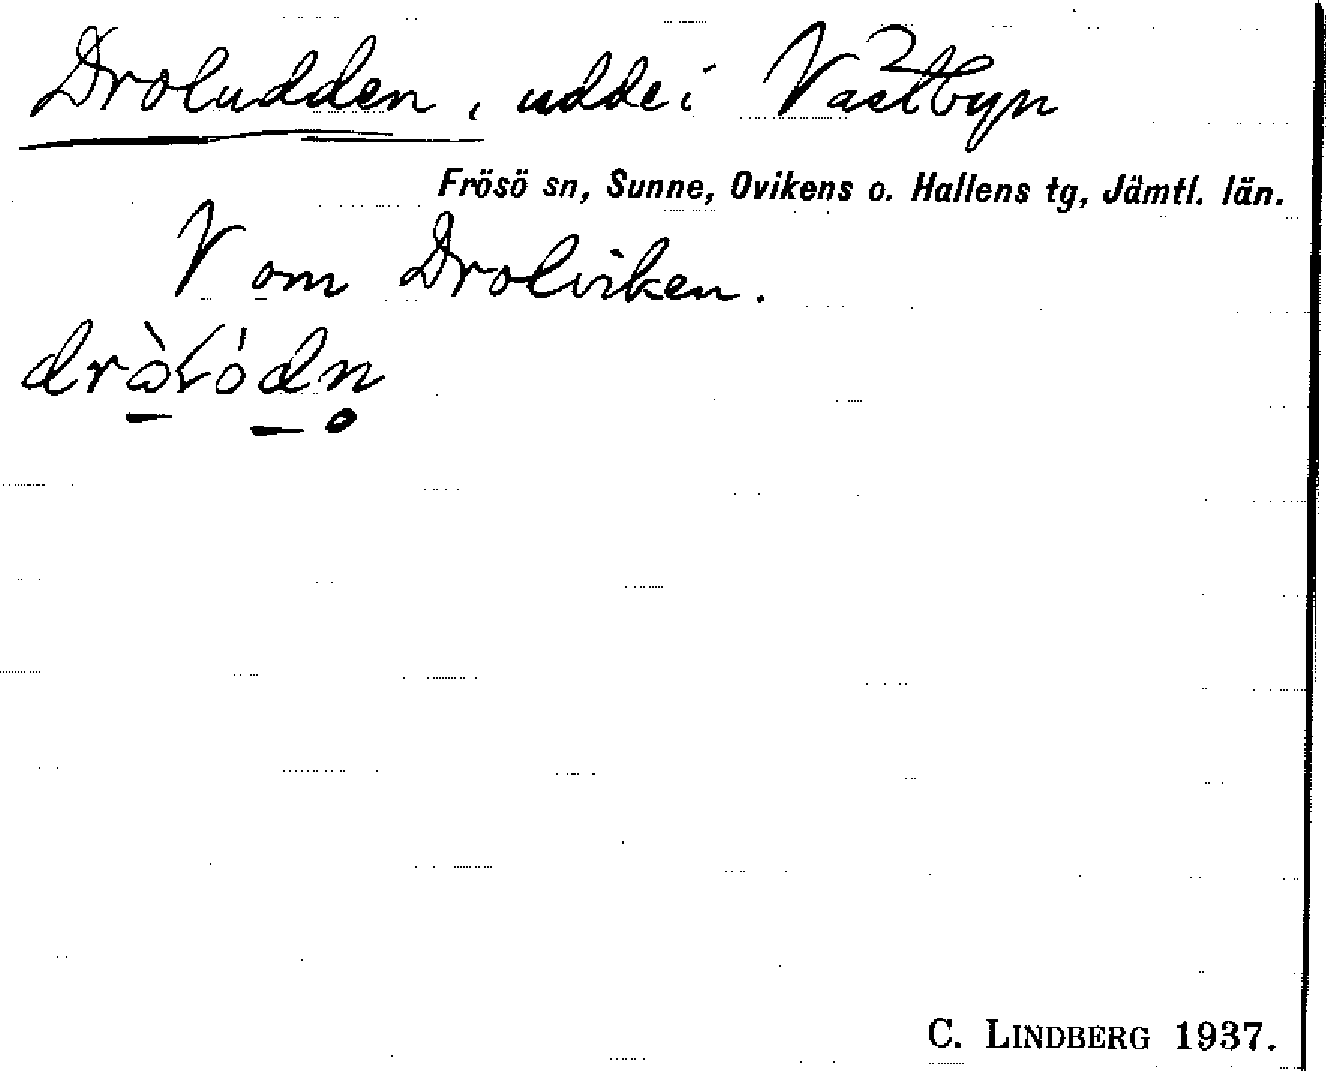 Droludden, udde i Västbyn
Frösö sn, Sunne, Ovikens o. Hallens tg, Jämtl. län.
V om Drolviken.
C. LINDBERG 1937.